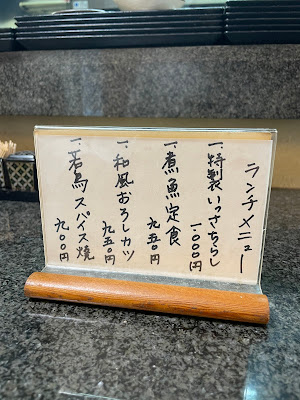 ランチメニュー
一、特製いっさちらし 一、〇〇〇円
一、煮魚定食 九五〇円
一、和風おろしカツ 九五〇円
一、若鳥スパイス焼 九〇〇円